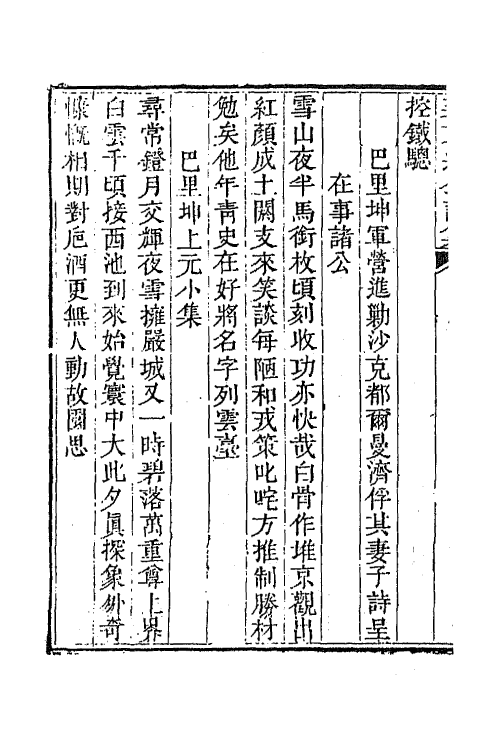 控鐵驄
巴里坤軍營進勦沙克都爾曼濟俘其妻子詩呈
在事諸公
雪山夜半馬銜枚頃刻收功亦快哉白骨作堆京觀出
紅顏成土闕支來笑談每陋和戎策叱咤方推制勝材
勉矣他年靑史在好將名字列雲臺
巴里坤上元小集
尋常鐙月交輝夜雪擁嚴城又一時碧落萬重尊上界
白雲千頃接西池到來始覺寰中大此夕眞探象外奇
慷慨相期對巵酒更無人動故園思